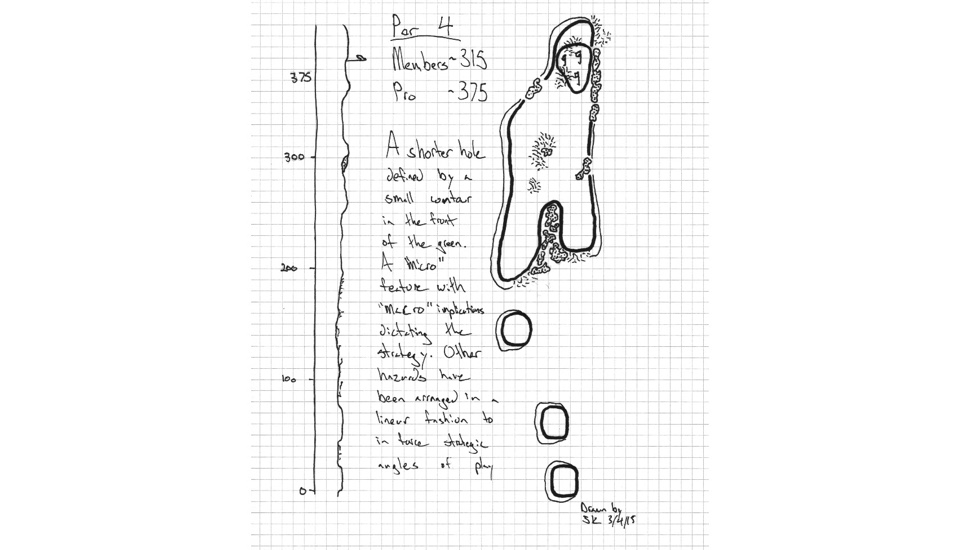 Par 4
Members ~315
Pro ~375
A shorter hole
defined by a
small contour
in the front
of the green.
A "Micro"
feature with
"Macro" implications
dictating the
strategy. Other
hazards have
been arranged in a
linear fashion to
in force strategic
angles of play
375
300
200
100
0
Drawn by
SK 3/4/15